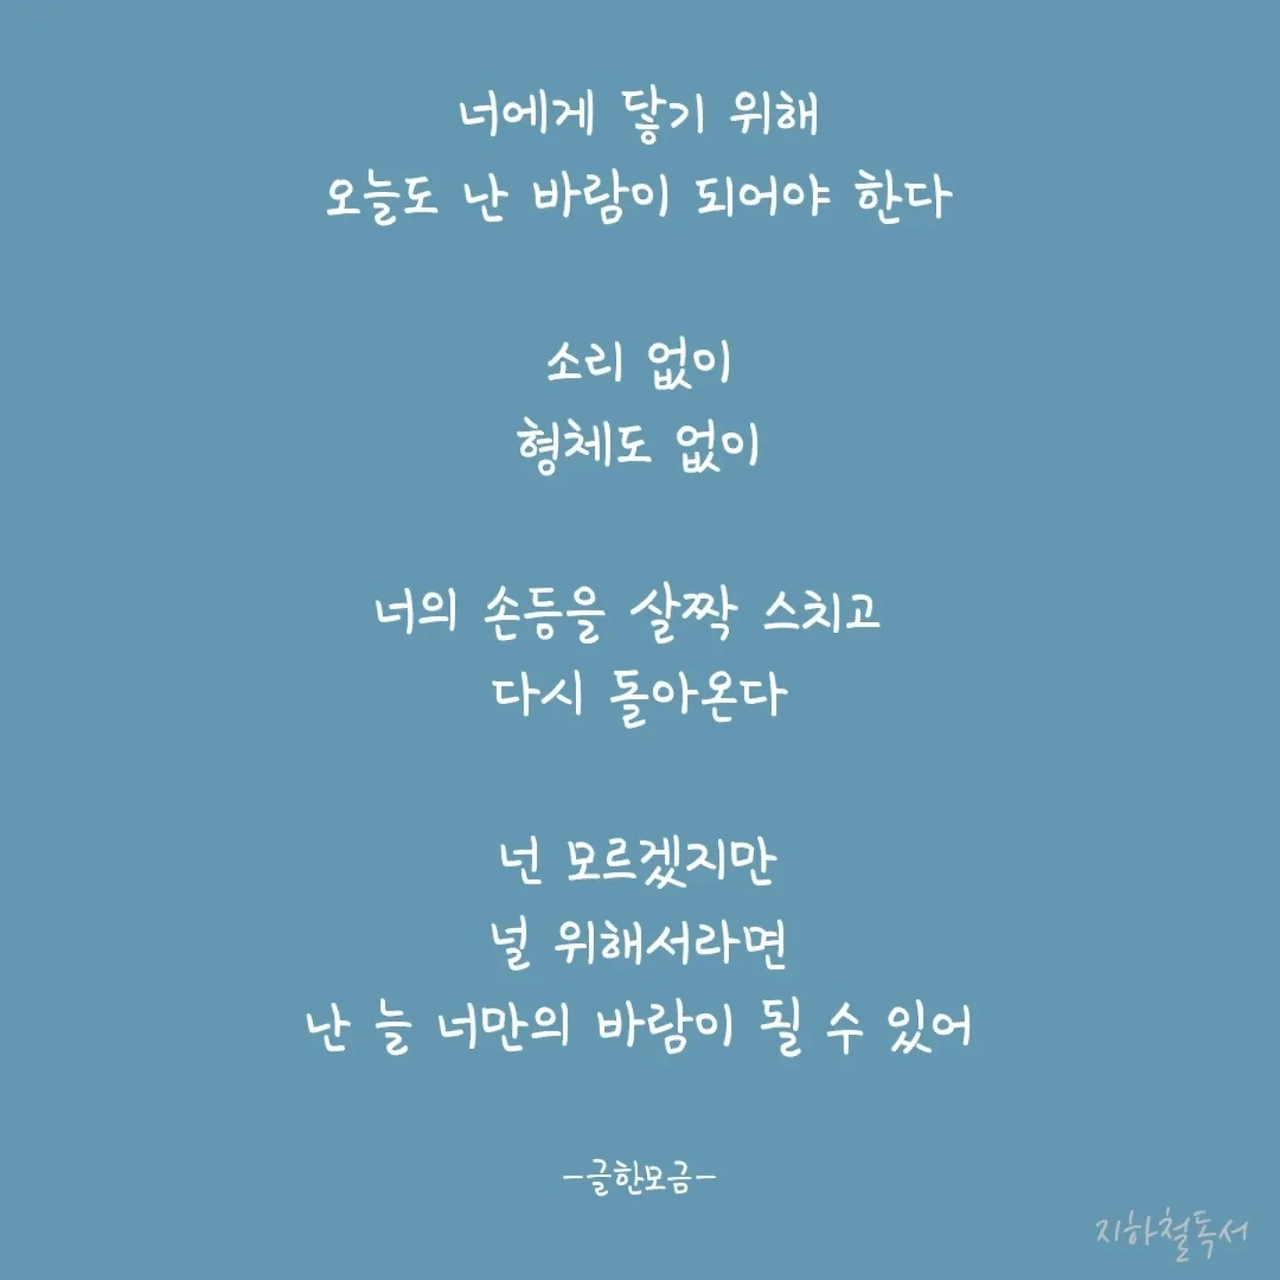 너에게 닿기 위해
오늘도 난 바람이 되어야 한다
소리 없이
형체도 없이
너의 손등을 살짝 스치고
다시 돌아온다
넌 모르겠지만
널 위해서라면
난 늘 너만의 바람이 될 수 있어
-글한모금-
지하철독서